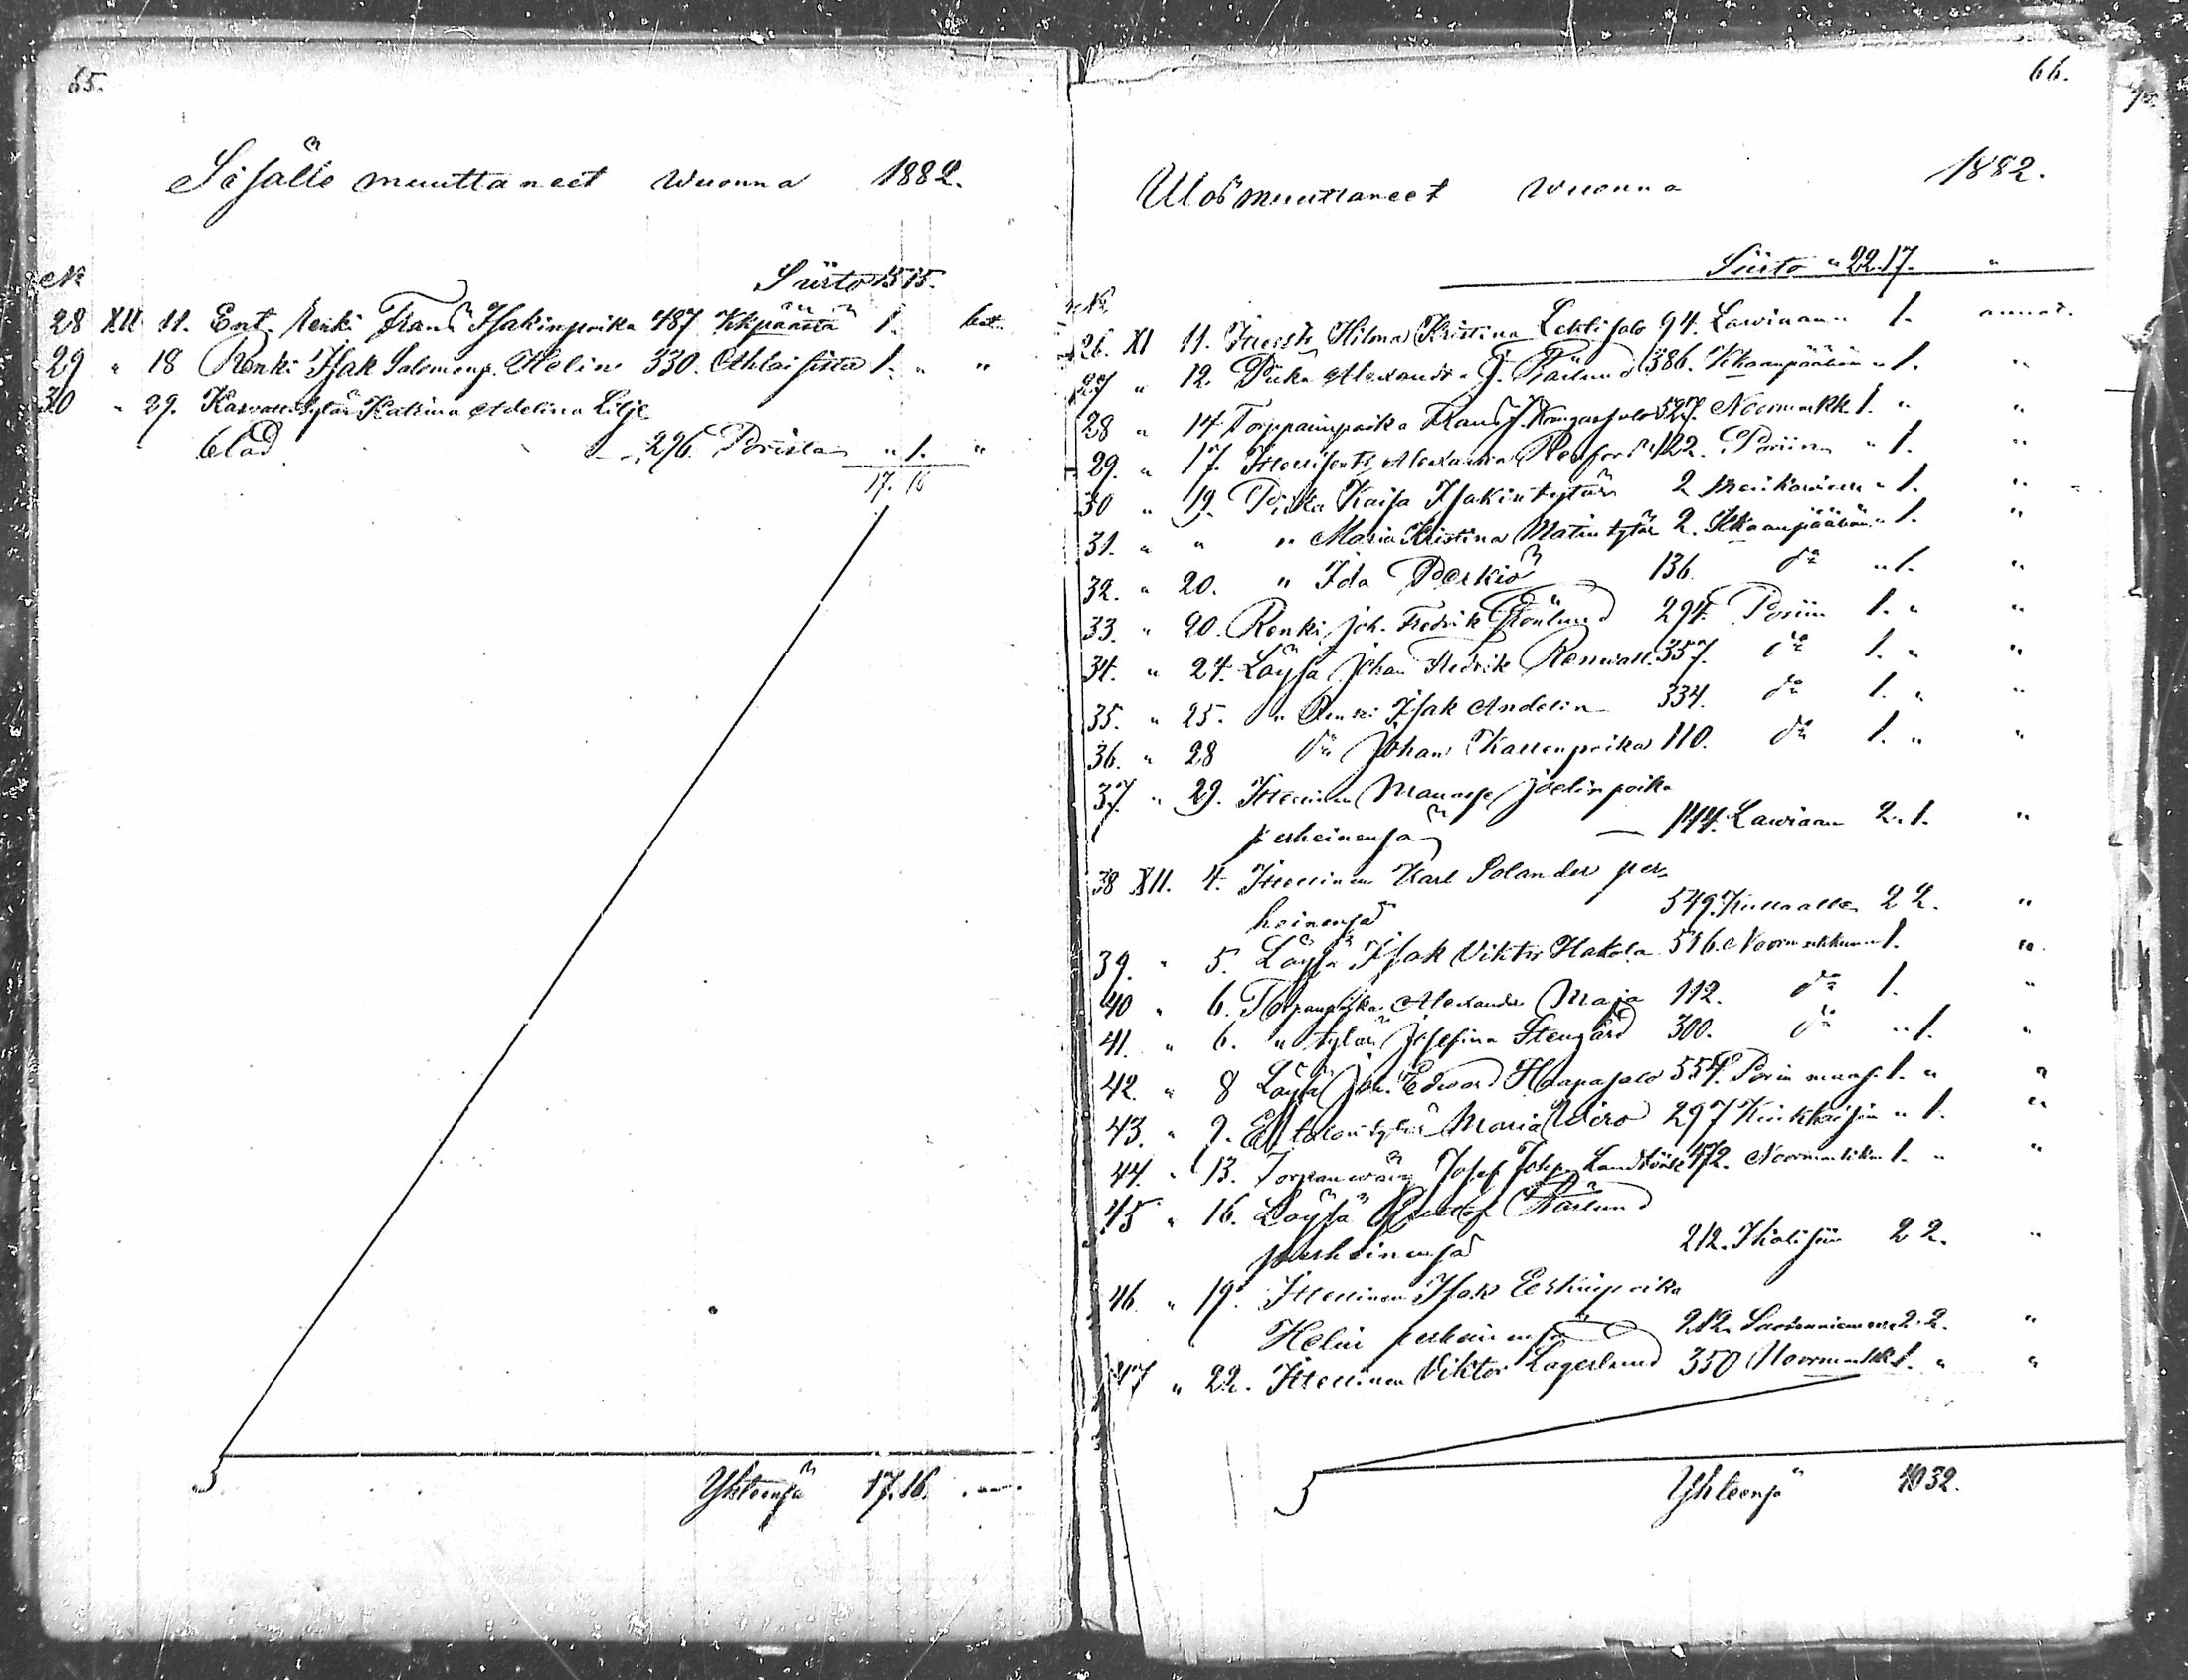 65.
Sisälle muuttaneet wuonna 1882.
No Siirto 15 15.
28 XII 11. Ent. Renki Frans Isakinpoika 487 Kkpäästä 1. "
29 " 18 Renki Isak Salomonp. Helin 330. Ahlaisista 1. " "
30 " 29. Katrina Adelina Lilje
blad 296. Porista " 1. "
17. 16
Yhteensä 17. 16.
66.
Ulosmuuttaneet wuonna 1882.
Siirto " 22. 17. "
No
26. XI 11. Itsells. Hilma Kristina Lehtisalo 94. Lawiaan " 1. annet.
27 " 12. Piika Alexandra J. 386. Kkaanpäähän " 1. "
28 " 14 Torpparinpoika Frans J. Kangassalo 527. Noormarkk 1. " "
29. " 17. Alexandra 122. Poriin " 1. "
30 " 19. Piika Kaisa Isakintytär 2 Merikarvialle " 1. "
31. " " " Maria Kristina Matintytär 2. Kkaanpäähän " 1. "
32. " 20. " Ida Perkiö 136. do " 1. "
33. " 20. Renki Joh. Fredrik Grönlund 294. Poriin 1. " "
34. " 24. Loysä Johan Fredrik Renwall 357. do 1. " "
35. " 25. " Renki Isak Andelin 334. do 1. " "
36. " 28 do Johan Kallenpoika 110. do 1. " "
37. " 29. Itsellinen Manasse Joelinpoika
perheinensä 144. Lawiaan 2. 1. "
38 XII. 4. Itsellinen Karl Polander per-
heinensä 549. Kullaalle 2 2. "
39. " 5. Loysä Isak Viktor Hakola 516. Noormarkkuun 1. "
40 " 6. Torpanpoika Alexander Maja 112. do 1. "
41. " 6. " tytär Josefina Stengård 300. do " 1. "
42. " 8 Loysä Joh. Edward Haapasalo 554. Porin maas. 1. " "
43. " 9. talontytär Maria Wiro 297 Kiukkaisiin " 1. "
44. " 13. Torpanwäwy Josef Johnp. 172. Noormarkkun 1. " "
45 " 16. Loysä Gustaf
perheinensä 212. Ikalisiin 2 2. "
46. " 19. Itsellinen Isak Eerkinpoika
Helin perheinensä 212. 2. 2. "
47 " 22. Itsellinen Viktor Lagerlund 350 Noormarkk 1. " "
Yhteensä 40 32.